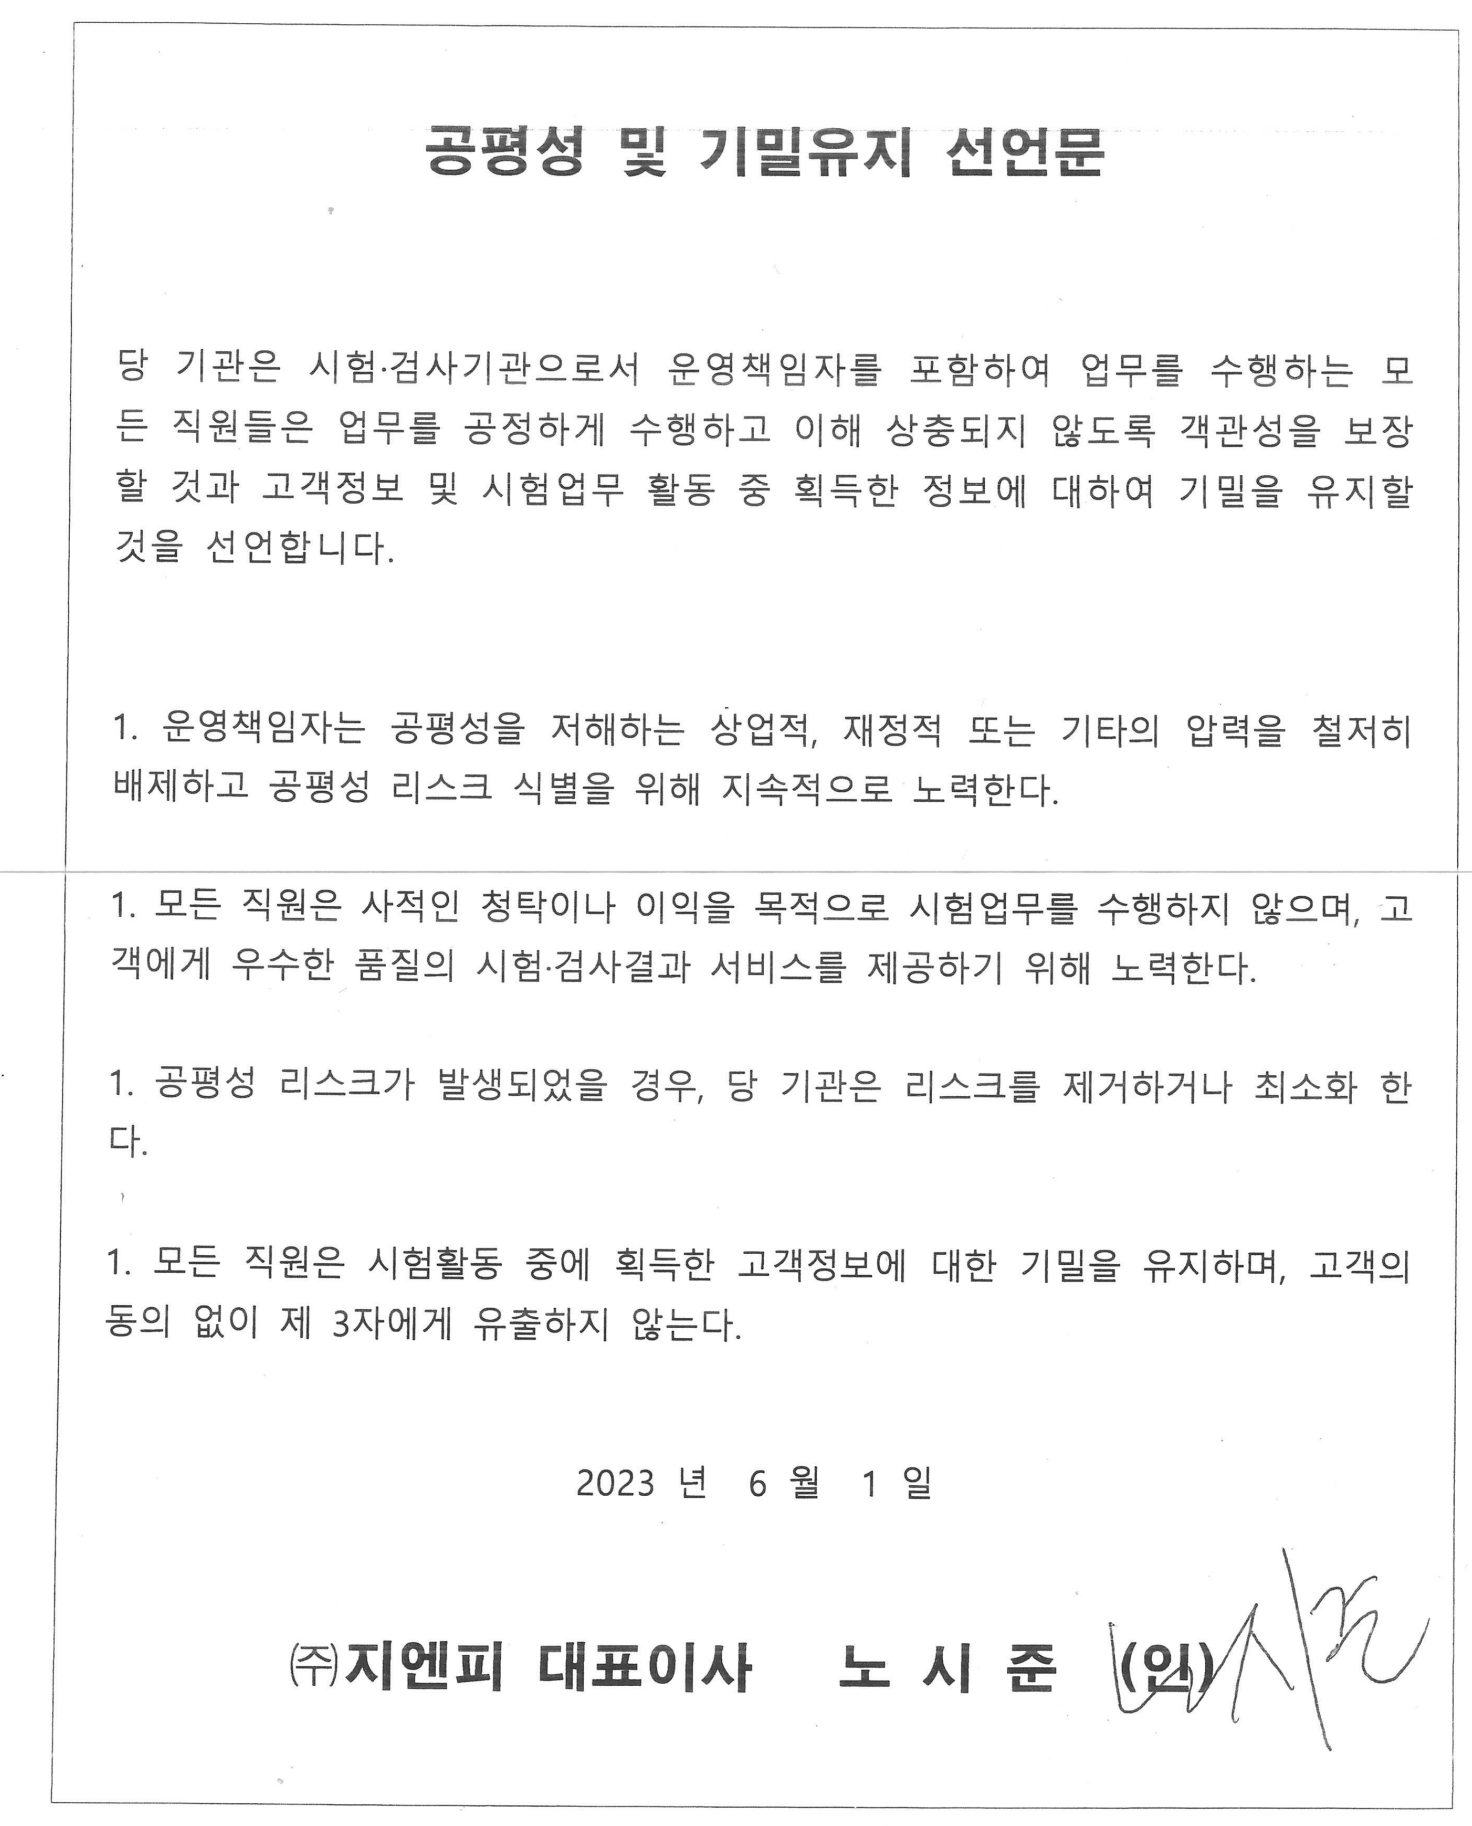 공평성 및 기밀유지 선언문
당 기관은 시험·검사기관으로서 운영책임자를 포함하여 업무를 수행하는 모
든 직원들은 업무를 공정하게 수행하고 이해 상충되지 않도록 객관성을 보장
할 것과 고객정보 및 시험업무 활동 중 획득한 정보에 대하여 기밀을 유지할
것을 선언합니다.
1. 운영책임자는 공평성을 저해하는 상업적, 재정적 또는 기타의 압력을 철저히
배제하고 공평성 리스크 식별을 위해 지속적으로 노력한다.
1. 모든 직원은 사적인 청탁이나 이익을 목적으로 시험업무를 수행하지 않으며, 고
객에게 우수한 품질의 시험·검사결과 서비스를 제공하기 위해 노력한다.
1. 공평성 리스크가 발생되었을 경우, 당 기관은 리스크를 제거하거나 최소화 한
다.
1. 모든 직원은 시험활동 중에 획득한 고객정보에 대한 기밀을 유지하며, 고객의
동의 없이 제 3자에게 유출하지 않는다.
2023 년 6 월 1 일
㈜지엔피 대표이사 노 시 준 (인)